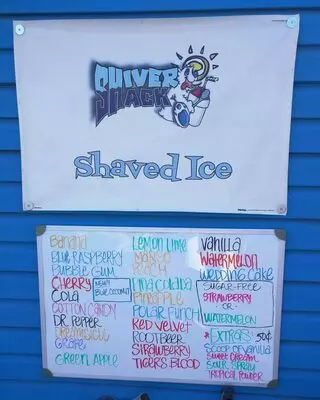 QUIVER
SHACK
Shaved Ice
BANANA
BLUE RASPBERRY
BUBBLE GUM
CHERRY
COLA
COTTON CANDY
DR. PEPPER
DREAMSICLE
GRAPE
GREEN APPLE
NEW!
BLUE COCONUT
LEMON LIME
MANGO
PEACH
PINA COLADA
PINEAPPLE
POLAR PUNCH
RED VELVET
ROOTBEER
STRAWBERRY
TIGERS BLOOD
VANILLA
WATERMELON
WEDDING CAKE
SUGAR-FREE
STRAWBERRY
OR
WATERMELON
* EXTRAS * 50¢
SCOOP OF VANILLA
SWEET CREAM
SOUR SPRAY
TROPICAL POWER